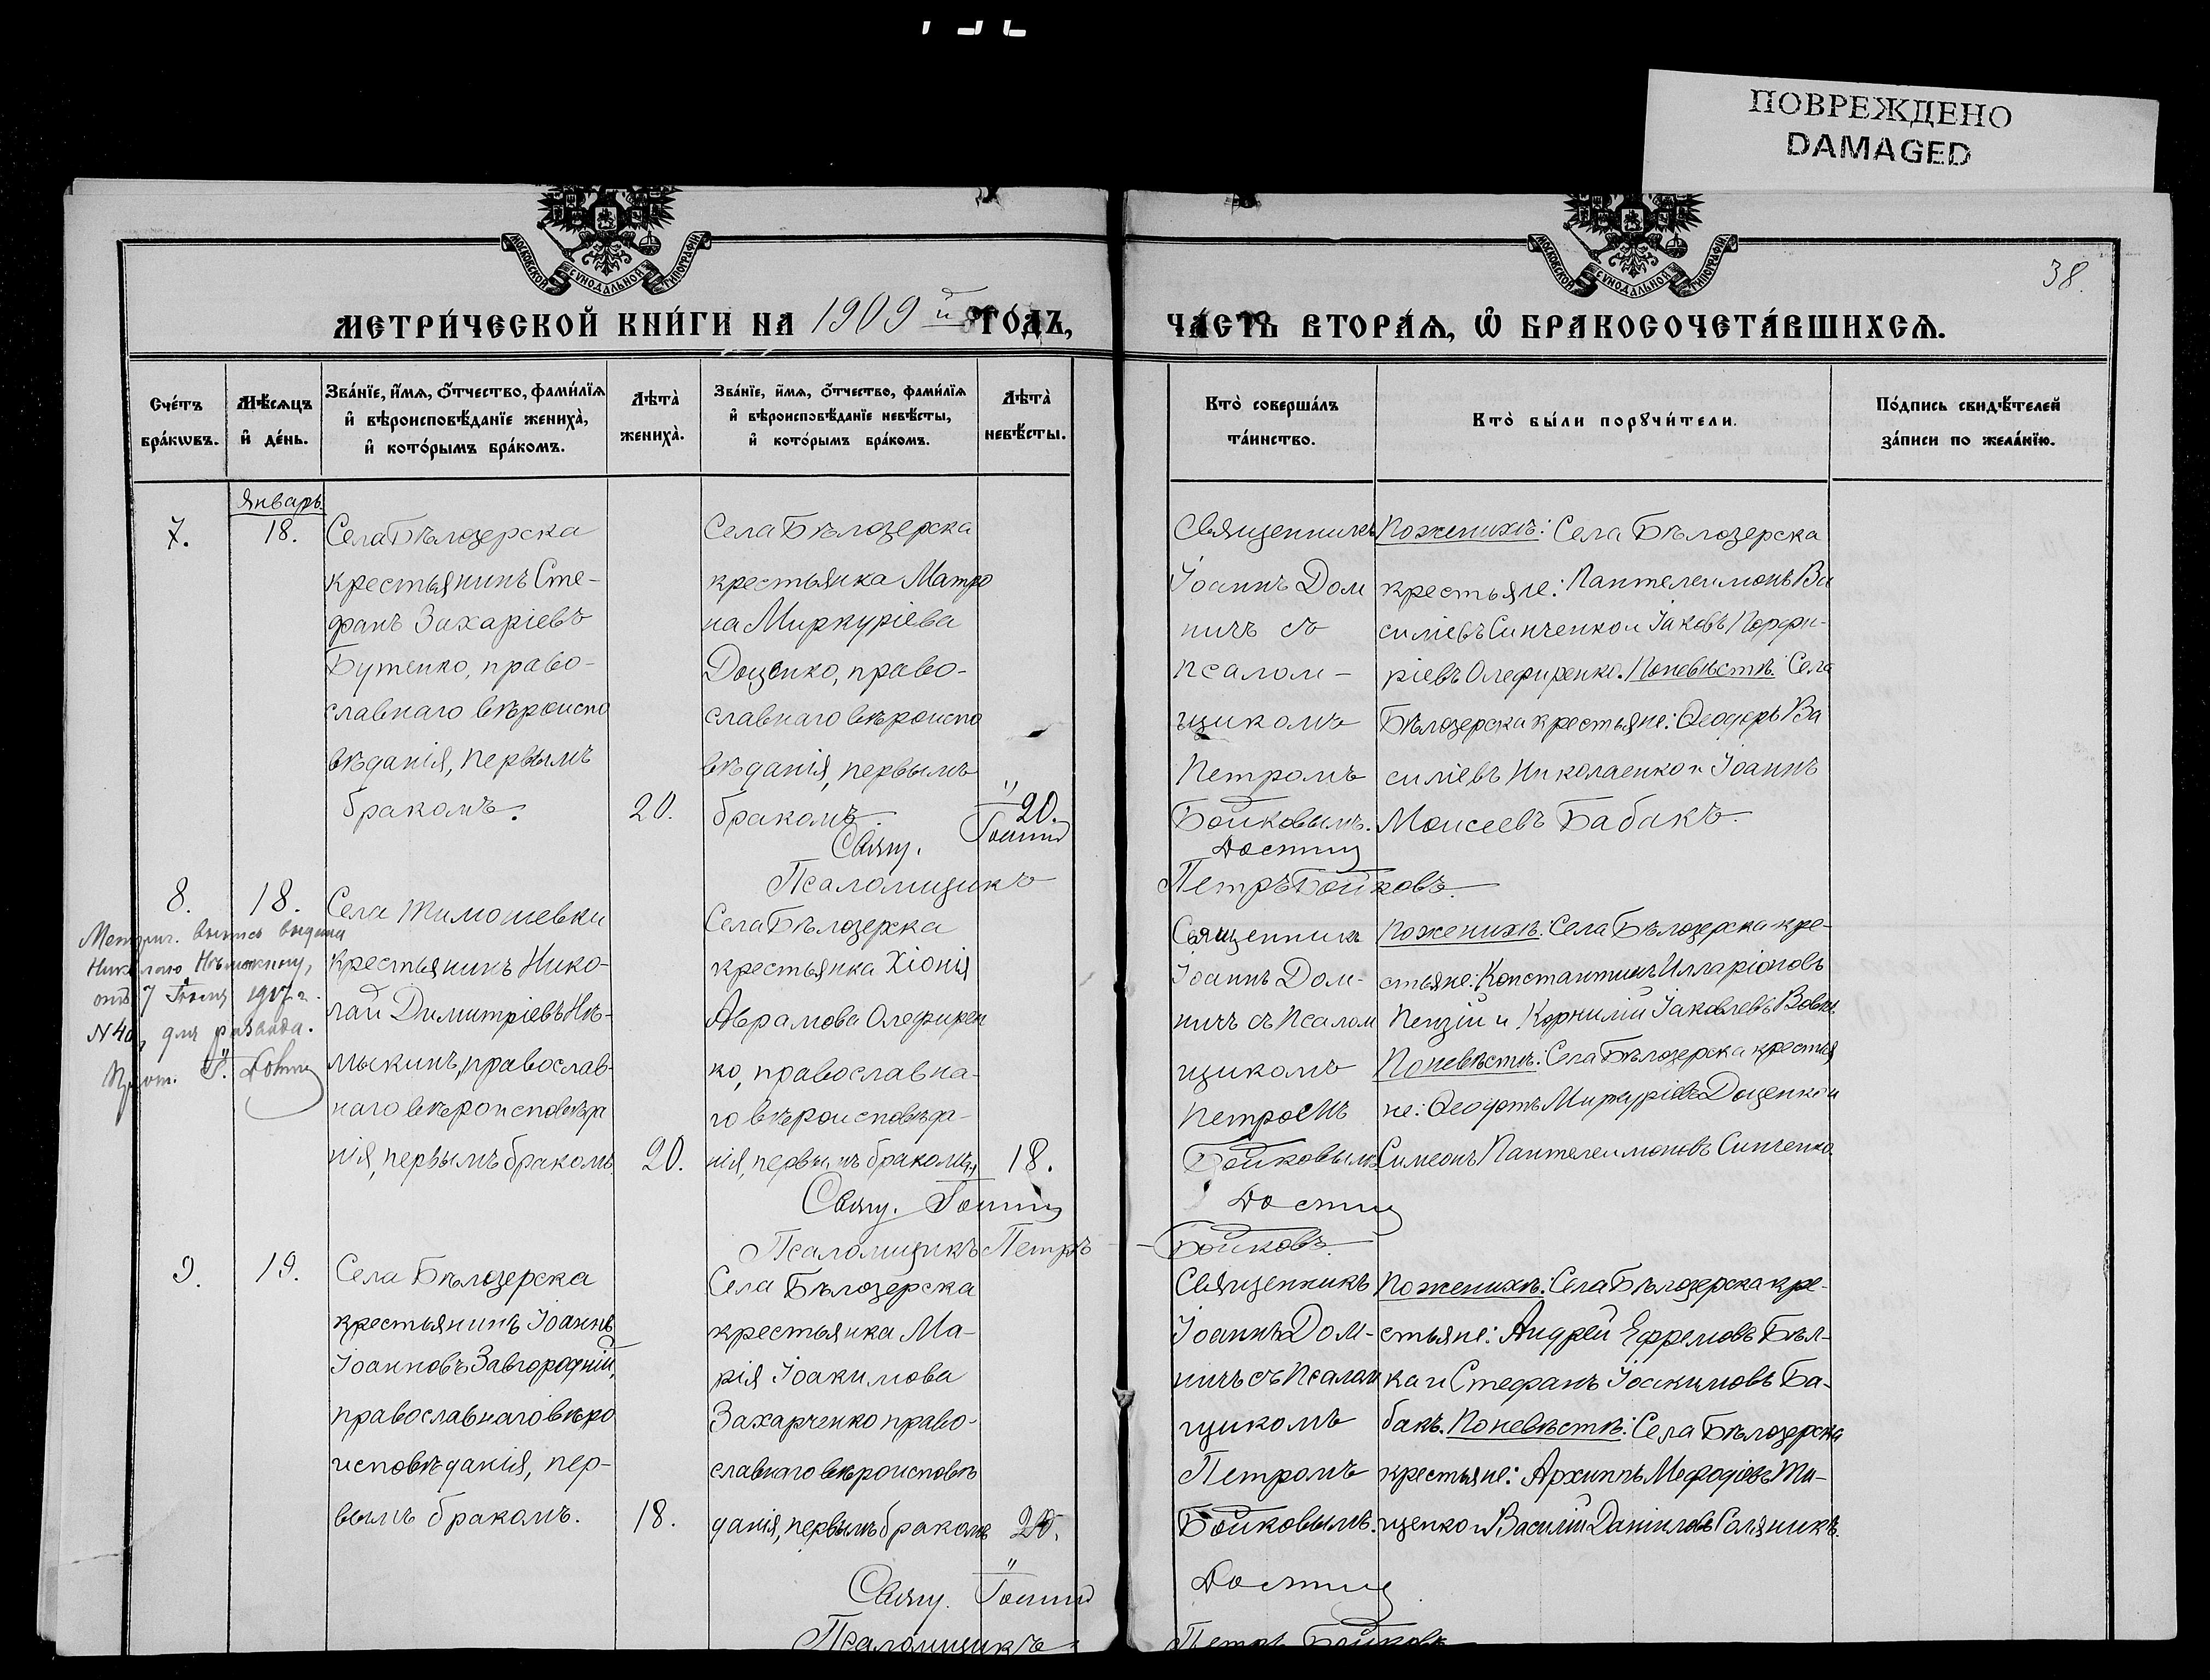 ПОВРЕЖДЕНО
DAMAGED
МОСКОВСКОЙ СѴНОДАЛЬНОЙ ТИПОГРАФІИ
МОСКОВСКОЙ СѴНОДАЛЬНОЙ ТИПОГРАФІИ
38.
МЕТРИ́ЧЕСКОЙ КНИ́ГИ НА 1909й ГО́ДЪ,
ЧА́СТЬ ВТОРА́Я, Ѽ БРАКОСОЧЕТА́ВШИХСЯ.
Сче́тъ
бра́кѡвъ.
Мѣ́сяцъ
и҆ де́нь.
Зва́нїе, и҆́мя, ѻ҆́тчество, фами́лїя
и҆ вѣроисповѣ́данїе жениха̀,
и҆ кото́рымъ бра́комъ.
Лѣта̀
жениха̀.
Зва́нїе, и҆́мя, ѻ҆́тчество, фами́лїя
и҆ вѣроисповѣ́данїе невѣ́сты,
и҆ кото́рымъ бра́комъ.
Лѣта̀
невѣ́сты.
Кто̀ соверша́лъ
та́инство.
Кто̀ бы́ли порꙋчи́тели.
По́дпись свидѣ́телей
за́писи по жела́нїю.
Январь.
7.
18.
Села Бѣлозерска
крестьянинъ Сте-
фанъ Захаріевъ
Бутенко, право-
славнаго вѣроиспо
вѣданія, первымъ
бракомъ.
20.
Села Бѣлозерска
крестьянка Матро
на Миркуріева
Доценко, право-
славнаго вѣроиспо
вѣданія, первымъ
бракомъ.
20.
Священникъ
Іоаннъ Дом
ничъ съ
псалом-
щикомъ
Петромъ
Бойковымъ.
По женихѣ: Села Бѣлозерска
крестьяне: Пантелеимонъ Ва
силіевъ Синченко и Іаковъ Порфи-
ріевъ Олефиренко. По невѣстѣ: Села
Бѣлозерска крестьяне: Ѳеодоръ Ва
силіевъ Николаенко и Іоаннъ
Моисеевъ Бабакъ.
Свящ. Іоаннъ
Псаломщикъ Петръ Бойковъ
8.
18.
Метрич. выпись выдана
от 7 1917 г.
N 40, для развода.
Прот. І.
Села Тимошевки
крестьянинъ Нико-
лай Димитріевъ Нѣ-
мыкинъ, православ-
наго вѣроисповѣда
нія, первымъ бракомъ
20.
Села Бѣлозерска
крестьянка Хіонія
Аврамова Олефирен
ко, православна-
го вѣроисповѣда-
нія, первымъ бракомъ
18.
Священникъ
Іоаннъ Дом-
ничъ съ псалом
щикомъ
Петромъ
Бойковымъ
По женихѣ: Села Бѣлозерска кре-
стьяне: Константинъ Илларіоновъ
и Корнилій Іаковлевъ
По невѣстѣ: Села Бѣлозерска крестья
не: Ѳеодотъ Миркуріевъ Доценко и
Симеонъ Пантелеимоновъ Синченко.
Свящ. Іоаннъ
Псаломщикъ Петръ Бойковъ.
9.
19.
Села Бѣлозерска
крестьянинъ Іоаннъ
Іоанновъ Завгородній,
православнаго вѣро
исповѣданія, пер-
вымъ бракомъ.
18.
Села Бѣлозерска
крестьянка Ма-
рія Іоакимова
Захарченко право-
славнаго вѣроисповѣ
данія, первымъ бракомъ
20.
Священникъ
Іоаннъ Дом-
ничъ съ псалом
щикомъ
Петромъ
Бойковымъ.
По женихѣ: Села Бѣлозерска кре-
стьяне: Андрей Ефремовъ Бѣл-
ка и Стефанъ Іоакимовъ Ба-
бакъ. По невѣстѣ: Села Бѣлозерска
крестьяне: Архиппъ Мефодіевъ Ти-
щенко и Василій Даніиловъ Голяникъ.
Свящ. Іоаннъ
Псаломщикъ Петръ Бойковъ